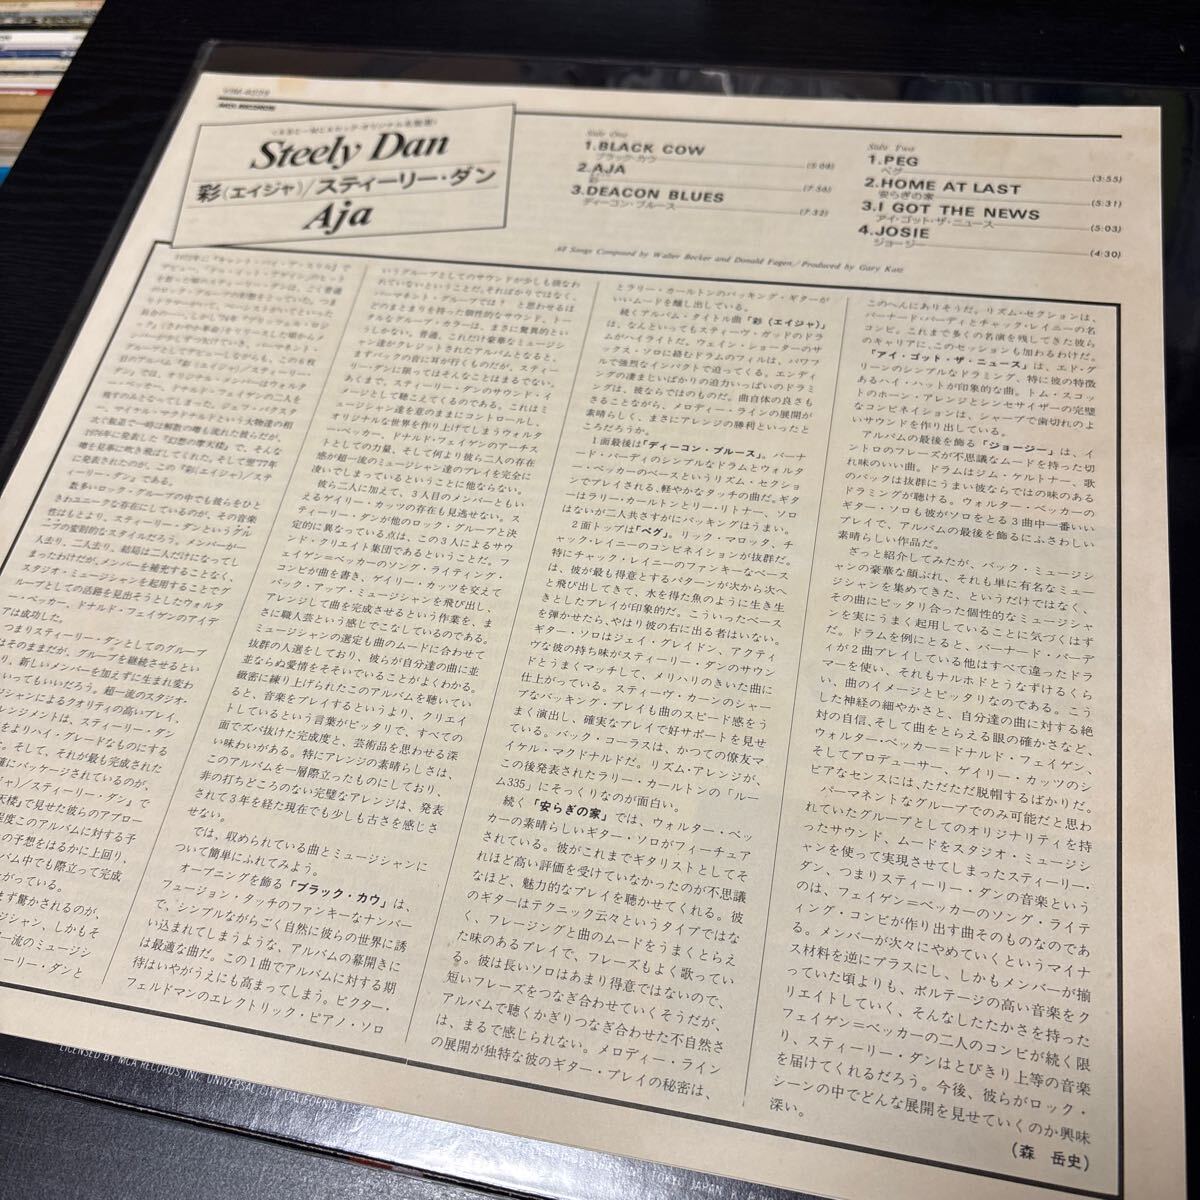 VIM-6228
MCA RECORDS
Steely Dan
彩(エイジャ)/スティーリー・ダン
Aja
Side One
1.BLACK COW
ブラック・カウ (5:08)
2.AJA
彩 (7:56)
3.DEACON BLUES
ディーコン・ブルース (7:32)
Side Two
1.PEG
ペグ (3:55)
2.HOME AT LAST
安らぎの家 (5:31)
3.I GOT THE NEWS
アイ・ゴット・ザ・ニュース (5:03)
4.JOSIE
ジョージー (4:30)
All Songs Composed by Walter Becker and Donald Fagen/Produced by Gary Katz
目のアルバム『彩(エイジャ)/スティーリー
残すのみとなってしまった。ジェフ・バクスタ
ー、マイケル・マクドナルドという大物達の相
次ぐ脱退で一時は解散の噂も流れた彼らだが、
1976年に発表した『幻想の摩天楼』で、そんな
噂を見事に吹き飛ばしてくれた。そして翌'77年
に発表されたのが、この『彩(エイジャ)/ステ
ィーリー・ダン』である。
数多いロック・グループの中でも彼らをひと
きわユニークな存在にしているのが、その音楽
性はもとより、スティーリー・ダンというグル
ープの変則的なスタイルだろう。メンバーが一
人去り、二人去り、結局は二人だけになってし
まったわけだが、メンバーを補充することなく、
スタジオ・ミュージシャンを起用することでグ
ループとしての活路を見出そうとしたウォルタ
ー・ベッカー、ドナルド・フェイゲンのアイデ
アは成功した。
つまりスティーリー・ダンとしてのグループ
はそのままだが、グループを継続させるとい
り、新しいメンバーを加えずに生まれ変わ
いってもいいだろう。超一流のスタジオ・
ジシャンによるクオリティの高いプレイ、
レンジメントは、スティーリー・ダン
をよりハイ・グレードなものにする
そして、それが最も完成された
確にパッケージされているのが、
ャ)/スティーリー・ダン』で
天楼』で見せた彼らのアプロー
程度このアルバムに対する予
の予想をはるかに上回り、
バム中でも際立って完成
がっている。
まず驚かされるのが、
ジシャン、しかもそ
一流のミュージシ
ーリー・ダンと
いうグループとしてのサウンドが少しも損なわ
れていないということだ。そればかりではなく、
パーマネント・グループでは?と思わせるほ
どのまとまりを持った個性的なサウンド、トー
タルなグループ・カラーは、まさに驚異的とい
うしかない。普通、これだけ豪華なミュージシ
ャン達がクレジットされたアルバムとなると、
まずバックの音に耳が行くものだが、スティー
リー・ダンに限ってはそんなことはまるでない。
あくまで、スティーリー・ダンのサウンド・イ
メージとして聴こえてくるのである。これはミ
ュージシャン達を意のままにコントロールし、
オリジナルな世界を作り上げてしまうウォルタ
ー・ベッカー、ドナルド・フェイゲンのアーチス
トとしての力量、そして何より彼ら二人の存在
感が超一流のミュージシャン達のプレイを完全に
凌いでしまっているということに他ならない。
彼ら二人に加えて、3人目のメンバーともい
えるゲイリー・カッツの存在も見逃せない。ス
ティーリー・ダンが他のロック・グループと決
定的に異なっている点は、この3人によるサウ
ンド・クリエイト集団であるということだ。フ
ェイゲン=ベッカーのソング・ライティング・
コンビが曲を書き、ゲイリー・カッツを交えて
バック・アップ・ミュージシャンを飛び出し、
アレンジして曲を完成させるという作業を、ま
さに職人芸という感じでこなしているのである。
ミュージシャンの選定も曲のムードに合わせて
抜群の人選をしており、彼らが自分達の曲に並
並ならぬ愛情をそそいでいることがよくわかる。
緻密に練り上げられたこのアルバムを聴いてい
ると、音楽をプレイするというより、クリエイ
トしているという言葉がピッタリで、すべての
面でズバ抜けた完成度と、芸術品を思わせる深
い味わいがある。特にアレンジの素晴らしさは、
このアルバムを一層際立ったものにしており、
非の打ちどころのない完璧なアレンジは、発表
されて3年を経た現在でも少しも古さを感じさ
せない。
では、収められている曲とミュージシャンに
ついて簡単にふれてみよう。
オープニングを飾る「ブラック・カウ」は、
フュージョン・タッチのファンキーなナンバー
で、シンプルながらごく自然に彼らの世界に誘
い込まれてしまうような、アルバムの幕開きに
は最適な曲だ。この1曲でアルバムに対する期
待はいやがうえにも高まってしまう。ビクター・
フェルドマンのエレクトリック・ピアノ・ソロ
とラリー・カールトンのバッキング・ギターが
いいムードを醸し出している。
続くアルバム・タイトル曲「彩(エイジャ)」
は、なんといってもスティーヴ・ガッドのドラ
ムがハイライトだ。ウェイン・ショーターのサ
ックス・ソロに絡むドラムのフィルは、パワフ
ルで強烈なインパクトで迫ってくる。エンディ
ングの凄まじいばかりの迫力いっぱいのドラミ
ングは、彼ならではのものだ。曲自体の良さも
さることながら、メロディー・ラインの展開が
素晴らしく、まさにアレンジの勝利といったと
ころだろうか。
1面最後は「ディーコン・ブルース」。バーナ
ード・パーディのシンプルなドラムとウォルタ
ー・ベッカーのベースというリズム・セクショ
ンでプレイされる、軽やかなタッチの曲だ。ギタ
ーはラリー・カールトンとリー・リトナー、ソロ
はないが二人共さすがにバッキングはうまい。
2面トップは「ペグ」。リック・マロッタ、チ
ャック・レイニーのコンビネイションが抜群だ。
特にチャック・レイニーのファンキーなベース
は、彼が最も得意とするパターンが次から次へ
と飛び出してきて、水を得た魚のように生き生
きとしたプレイが印象的だ。こういったベース
を弾かせたら、やはり彼の右に出る者はいない。
ギター・ソロはジェイ・グレイドン、アクティ
ヴな彼の持ち味がスティーリー・ダンのサウン
ドとうまくマッチして、メリハリのきいた曲に
仕上がっている。スティーヴ・カーンのシャー
プなバッキング・プレイも曲のスピード感をう
まく演出し、確実なプレイで好サポートを見せ
ている。バック・コーラスは、かつての僚友マ
イケル・マクドナルドだ。リズム・アレンジが、
この後発表されたラリー・カールトンの「ルー
ム335」にそっくりなのが面白い。
続く「安らぎの家」では、ウォルター・ベッ
カーの素晴らしいギター・ソロがフィーチュア
されている。彼がこれまでギタリストとしてそ
れほど高い評価を受けていなかったのが不思議
なほど、魅力的なプレイを聴かせてくれる。彼
のギターはテクニック云々というタイプではな
く、フレージングと曲のムードをうまくとらえ
た味のあるプレイで、フレーズもよく歌ってい
る。彼は長いソロはあまり得意ではないので、
短いフレーズをつなぎ合わせていくそうだが、
アルバムで聴くかぎりつなぎ合わせた不自然さ
は、まるで感じられない。メロディー・ライン
の展開が独特な彼のギター・プレイの秘密は、
このへんにありそうだ。リズム・セクションは、
バーナード・パーディとチャック・レイニーの名
コンビ。これまで多くの名演を残してきた彼ら
のキャリアに、このセッションも加わるわけだ。
「アイ・ゴット・ザ・ニュース」は、エド・グ
リーンのシンプルなドラミング、特に彼の特徴
あるハイ・ハットが印象的な曲。トム・スコッ
トのホーン・アレンジとシンセサイザーの完璧
なコンビネイションは、シャープで歯切れのよ
いサウンドを作り出している。
アルバムの最後を飾る「ジョージー」は、イ
ントロのフレーズが不思議なムードを持った切
れ味のいい曲。ドラムはジム・ケルトナー、歌
のバックは抜群にうまい彼ならではの味のある
ドラミングが聴ける。ウォルター・ベッカーの
ギター・ソロも彼がソロをとる3曲中一番いい
プレイで、アルバムの最後を飾るにふさわしい
素晴らしい作品だ。
ざっと紹介してみたが、バック・ミュージシ
ャンの豪華な顔ぶれ、それも単に有名なミュー
ジシャンを集めてきた、というだけではなく、
その曲にピッタリ合った個性的なミュージシャ
ンを実にうまく起用していることに気づくはず
だ。ドラムを例にとると、バーナード・パーデ
ィが2曲プレイしている他はすべて違ったドラ
マーを使い、それもナルホドとうなずけるくら
い、曲のイメージとピッタリなのである。こう
した神経の細やかさと、自分達の曲に対する絶
対の自信、そして曲をとらえる眼の確かさなど、
ウォルター・ベッカー=ドナルド・フェイゲン、
そしてプロデューサー、ゲイリー・カッツのシ
ビアなセンスには、ただただ脱帽するばかりだ。
パーマネントなグループでのみ可能だと思わ
れていたグループとしてのオリジナリティを持
ったサウンド、ムードをスタジオ・ミュージシ
ャンを使って実現させてしまったスティーリー・
ダン、つまりスティーリー・ダンの音楽という
のは、フェイゲン=ベッカーのソング・ライテ
ィング・コンビが作り出す曲そのものなのであ
る。メンバーが次々にやめていくというマイナ
ス材料を逆にプラスにし、しかもメンバーが揃
っていた頃よりも、ボルテージの高い音楽をク
リエイトしていく、そんなしたたかさを持った
フェイゲン=ベッカーの二人のコンビが続く限
り、スティーリー・ダンはとびきり上等の音楽
を届けてくれるだろう。今後、彼らがロック・
シーンの中でどんな展開を見せていくのか興味
深い。
(森 岳史)
LICENSED BY MCA RECORDS INC. UNIVERSAL CITY, CALIFORNIA
TOKYO JAPAN